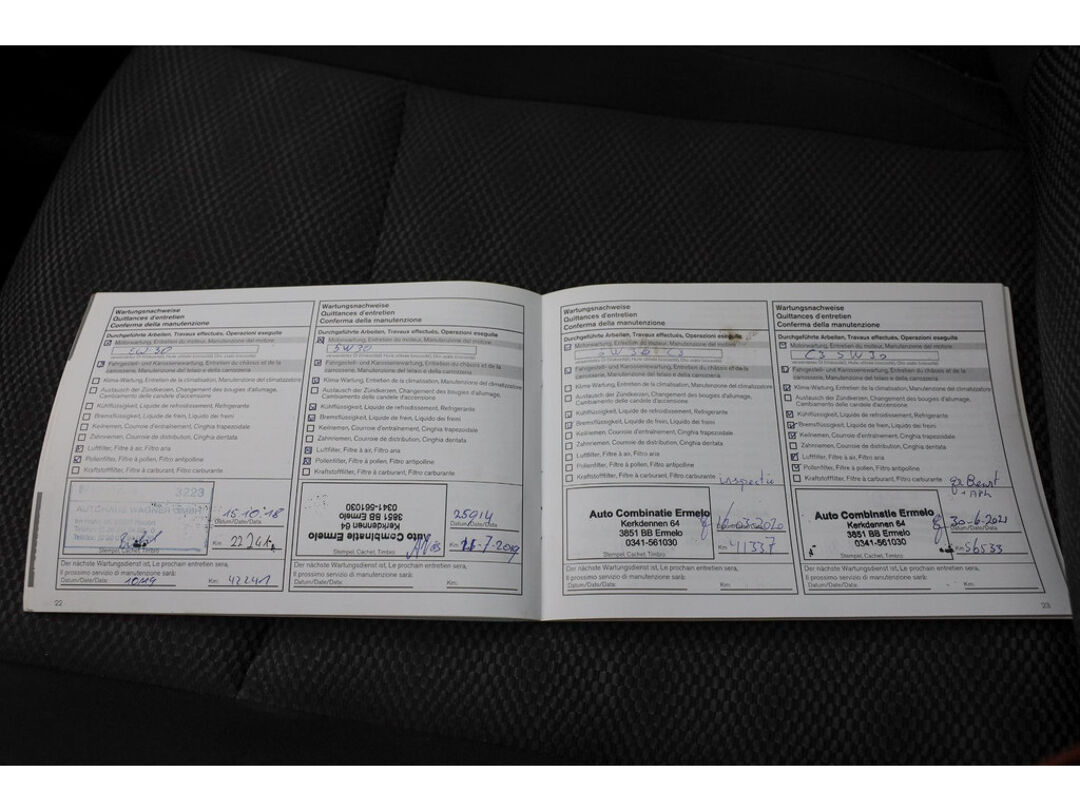 Wartungsnachweise
Quittances d'entretien
Conferma della manutenzione
Durchgeführte Arbeiten, Travaux effectués, Operazioni eseguite
Motorwartung, Entretien du moteur, Manutenzione del motore
5W30
Fahrgestell- und Karosseriewartung, Entretien du châssis et de la
carosserie, Manutenzione del telaio e della carrozzeria
Klima-Wartung, Entretien de la climatisation, Manutenzione del climatizzatore
Austausch der Zündkerzen, Changement des bougies d'allumage,
Cambiamento delle candele d'accensione
Kühlflüssigkeit, Liquide de refroidissement, Refrigerante
Bremsflüssigkeit, Liquide de frein, Liquido dei freini
Keilriemen, Courroie d'entraînement, Cinghia trapezoidale
Zahnriemen, Courroie de distribution, Cinghia dentata
Luftfilter, Filtre à air, Filtro aria
Pollenfilter, Filtre à pollen, Filtro antipolline
Kraftstofffilter, Filtre à carburant, Filtro carburante
3223
AUTOHAUS WAGNER GmbH
16.10.18
Datum/Date/Data
Km: 22241
Stempel, Cachet, Timbro
Der nächste Wartungsdienst ist, Le prochain entretien sera,
Il prossimo servizio di manutenzione sarà:
Datum/Date/Data: 10/19 Km: 42241
22
Wartungsnachweise
Quittances d'entretien
Conferma della manutenzione
Durchgeführte Arbeiten, Travaux effectués, Operazioni eseguite
Motorwartung, Entretien du moteur, Manutenzione del motore
5W30
Fahrgestell- und Karosseriewartung, Entretien du châssis et de la
carosserie, Manutenzione del telaio e della carrozzeria
Klima-Wartung, Entretien de la climatisation, Manutenzione del climatizzatore
Austausch der Zündkerzen, Changement des bougies d'allumage,
Cambiamento delle candele d'accensione
Kühlflüssigkeit, Liquide de refroidissement, Refrigerante
Bremsflüssigkeit, Liquide de frein, Liquido dei freini
Keilriemen, Courroie d'entraînement, Cinghia trapezoidale
Zahnriemen, Courroie de distribution, Cinghia dentata
Luftfilter, Filtre à air, Filtro aria
Pollenfilter, Filtre à pollen, Filtro antipolline
Kraftstofffilter, Filtre à carburant, Filtro carburante
Auto Combinatie Ermelo
Kerkdennen 64
3851 BB Ermelo
0341-561030
25014
Datum/Date/Data
Km: -7-2019
Der nächste Wartungsdienst ist, Le prochain entretien sera,
Il prossimo servizio di manutenzione sarà:
Datum/Date/Data: Km:
Wartungsnachweise
Quittances d'entretien
Conferma della manutenzione
Durchgeführte Arbeiten, Travaux effectués, Operazioni eseguite
Motorwartung, Entretien du moteur, Manutenzione del motore
5W30 C3
Fahrgestell- und Karosseriewartung, Entretien du châssis et de la
carosserie, Manutenzione del telaio e della carrozzeria
Klima-Wartung, Entretien de la climatisation, Manutenzione del climatizzatore
Austausch der Zündkerzen, Changement des bougies d'allumage,
Cambiamento delle candele d'accensione
Kühlflüssigkeit, Liquide de refroidissement, Refrigerante
Bremsflüssigkeit, Liquide de frein, Liquido dei freini
Keilriemen, Courroie d'entraînement, Cinghia trapezoidale
Zahnriemen, Courroie de distribution, Cinghia dentata
Luftfilter, Filtre à air, Filtro aria
Pollenfilter, Filtre à pollen, Filtro antipolline
Kraftstofffilter, Filtre à carburant, Filtro carburante
inspectie
Auto Combinatie Ermelo
Kerkdennen 64
3851 BB Ermelo
0341-561030
16-03-2020
Datum/Date/Data
Km: 41337
Stempel, Cachet, Timbro
Der nächste Wartungsdienst ist, Le prochain entretien sera,
Il prossimo servizio di manutenzione sarà:
Datum/Date/Data: Km:
Wartungsnachweise
Quittances d'entretien
Conferma della manutenzione
Durchgeführte Arbeiten, Travaux effectués, Operazioni eseguite
Motorwartung, Entretien du moteur, Manutenzione del motore
C3 5W30
Fahrgestell- und Karosseriewartung, Entretien du châssis et de la
carosserie, Manutenzione del telaio e della carrozzeria
Klima-Wartung, Entretien de la climatisation, Manutenzione del climatizzatore
Austausch der Zündkerzen, Changement des bougies d'allumage,
Cambiamento delle candele d'accensione
Kühlflüssigkeit, Liquide de refroidissement, Refrigerante
Bremsflüssigkeit, Liquide de frein, Liquido dei freini
Keilriemen, Courroie d'entraînement, Cinghia trapezoidale
Zahnriemen, Courroie de distribution, Cinghia dentata
Luftfilter, Filtre à air, Filtro aria
Pollenfilter, Filtre à pollen, Filtro antipolline
Kraftstofffilter, Filtre à carburant, Filtro carburante
Auto Combinatie Ermelo
Kerkdennen 64
3851 BB Ermelo
0341-561030
30-6-2021
Datum/Date/Data
Km: 56533
Stempel, Cachet, Timbro
Der nächste Wartungsdienst ist, Le prochain entretien sera,
Il prossimo servizio di manutenzione sarà:
Datum/Date/Data: Km:
23